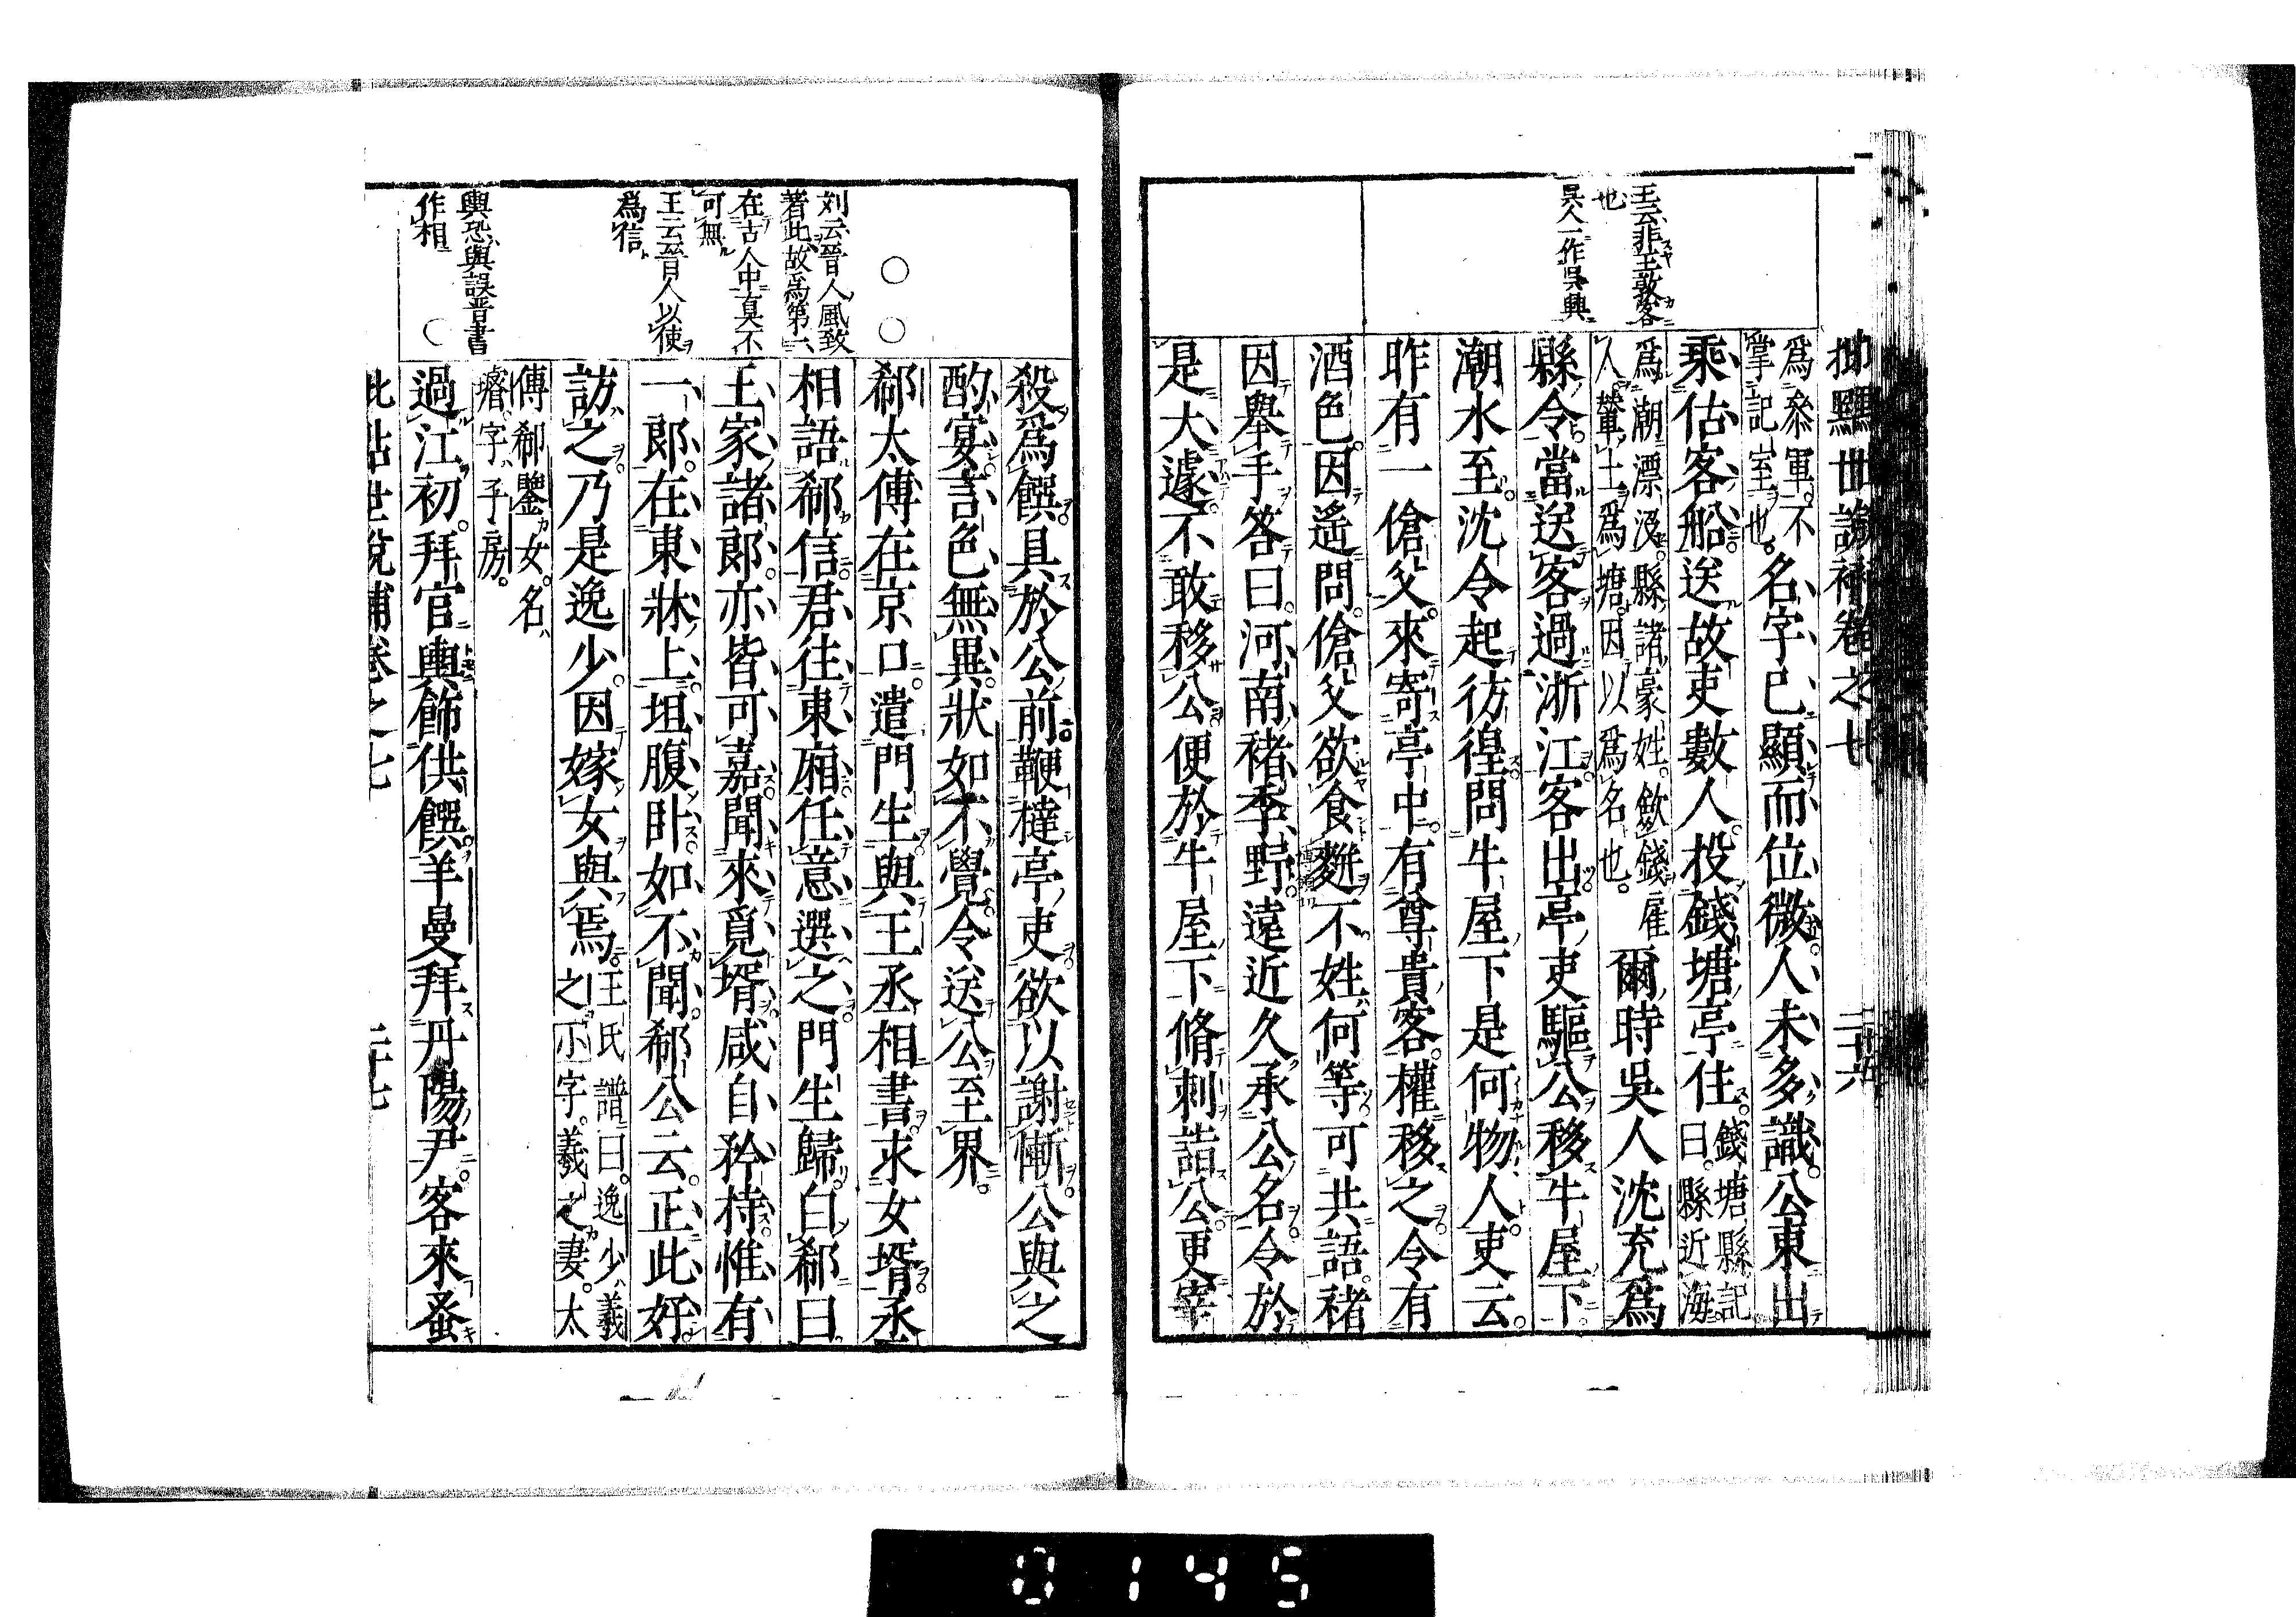 王云非王敦客
也
吳人一作吳興
世說補卷之七 二十六
爲叅軍不
掌記室也名字已顯而位微人未多識公東出
乘估客船送故吏數人投錢塘亭住錢塘縣記
曰縣近海
爲潮漂沒縣諸豪姓斂錢雇
人輦土爲塘因以爲名也爾時吳人沈充爲
縣令當送客過浙江客出亭吏驅公移牛屋下
潮水至沈令起彷徨問牛屋下是何物人吏云
昨有一傖父來寄亭中有尊貴客權移之令有
酒色因遙問傖父欲食麨不姓何等可共語褚
因舉手答曰河南褚季野遠近久承公名令於
是大遽不敢移公便於牛屋下脩刺詣公更宰
刘云晉人風致
著此故爲第一
在古人中真不
可無
王云晉人以使
爲信
輿恐與誤晉書
作相
殺爲饌具於公前鞭撻亭吏欲以謝慚公與之
酌宴言色無異狀如不覺令送公至界
郗太傅在京口遣門生與王丞相書求女壻丞
相語郗信君往東廂任意選之門生歸白郗曰
王家諸郎亦皆可嘉聞來覓壻咸自矜持惟有
一郎在東牀上坦腹卧如不聞郗公云正此好
訪之乃是逸少因嫁女與焉王氏譜曰逸少羲
之小字羲之妻太
傅郗鑒女名
璿字子房
過江初拜官輿飾供饌羊曼拜丹陽尹客來蚤
此點世說補卷之七 二十七
0145